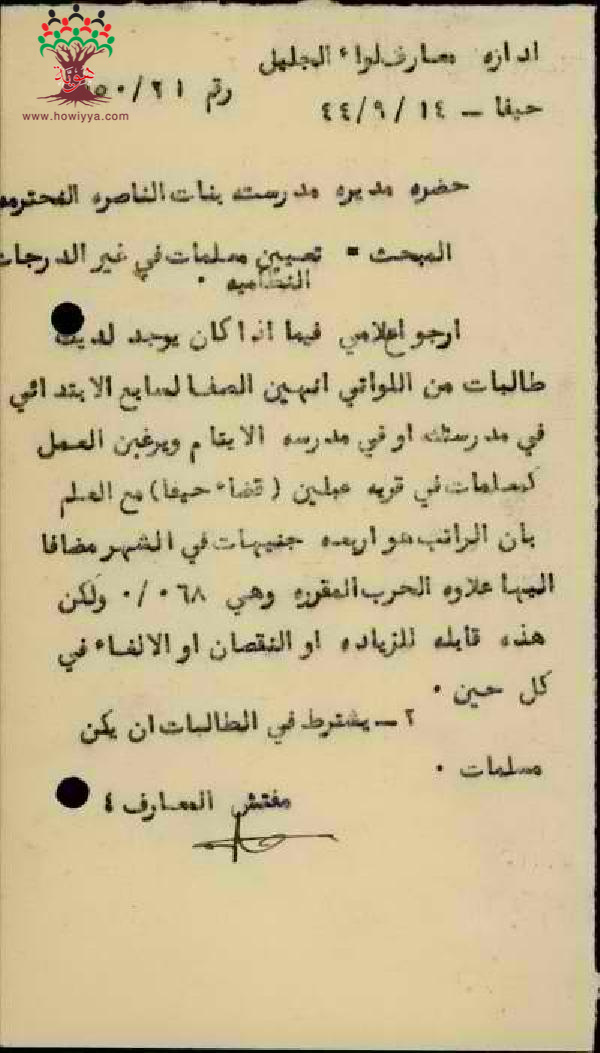 ادازه معارف لواء الجليل
رقم ٥٠/٢١
حيفا - ٤٤/٩/١٤
حضره مديره مدرسته بنات الناصره المحترمه
المبحث = تعيين معلمات في غير الدرجات
النظاميه .
ارجو اعلامي فيما اذا كان يوجد لديك
طالبات من اللواتي انهين الصف السابع الابتدائي
في مدرستك او في مدرسه الايتام ويرغبن العمل
كمعلمات في قريه عبلين ( قضاء حيفا ) مع العلم
بان الراتب هو اربعه جنيهات في الشهر مضافا
اليها علاوه الحرب المقرره وهي ٠/٠ ٦٨ ولكن
هذه قابله للزياده او النقصان او الالغاء في
كل حين .
٢ - يشترط في الطالبات ان يكن
مسلمات .
مفتش المعارف ٤
www.howiyya.com